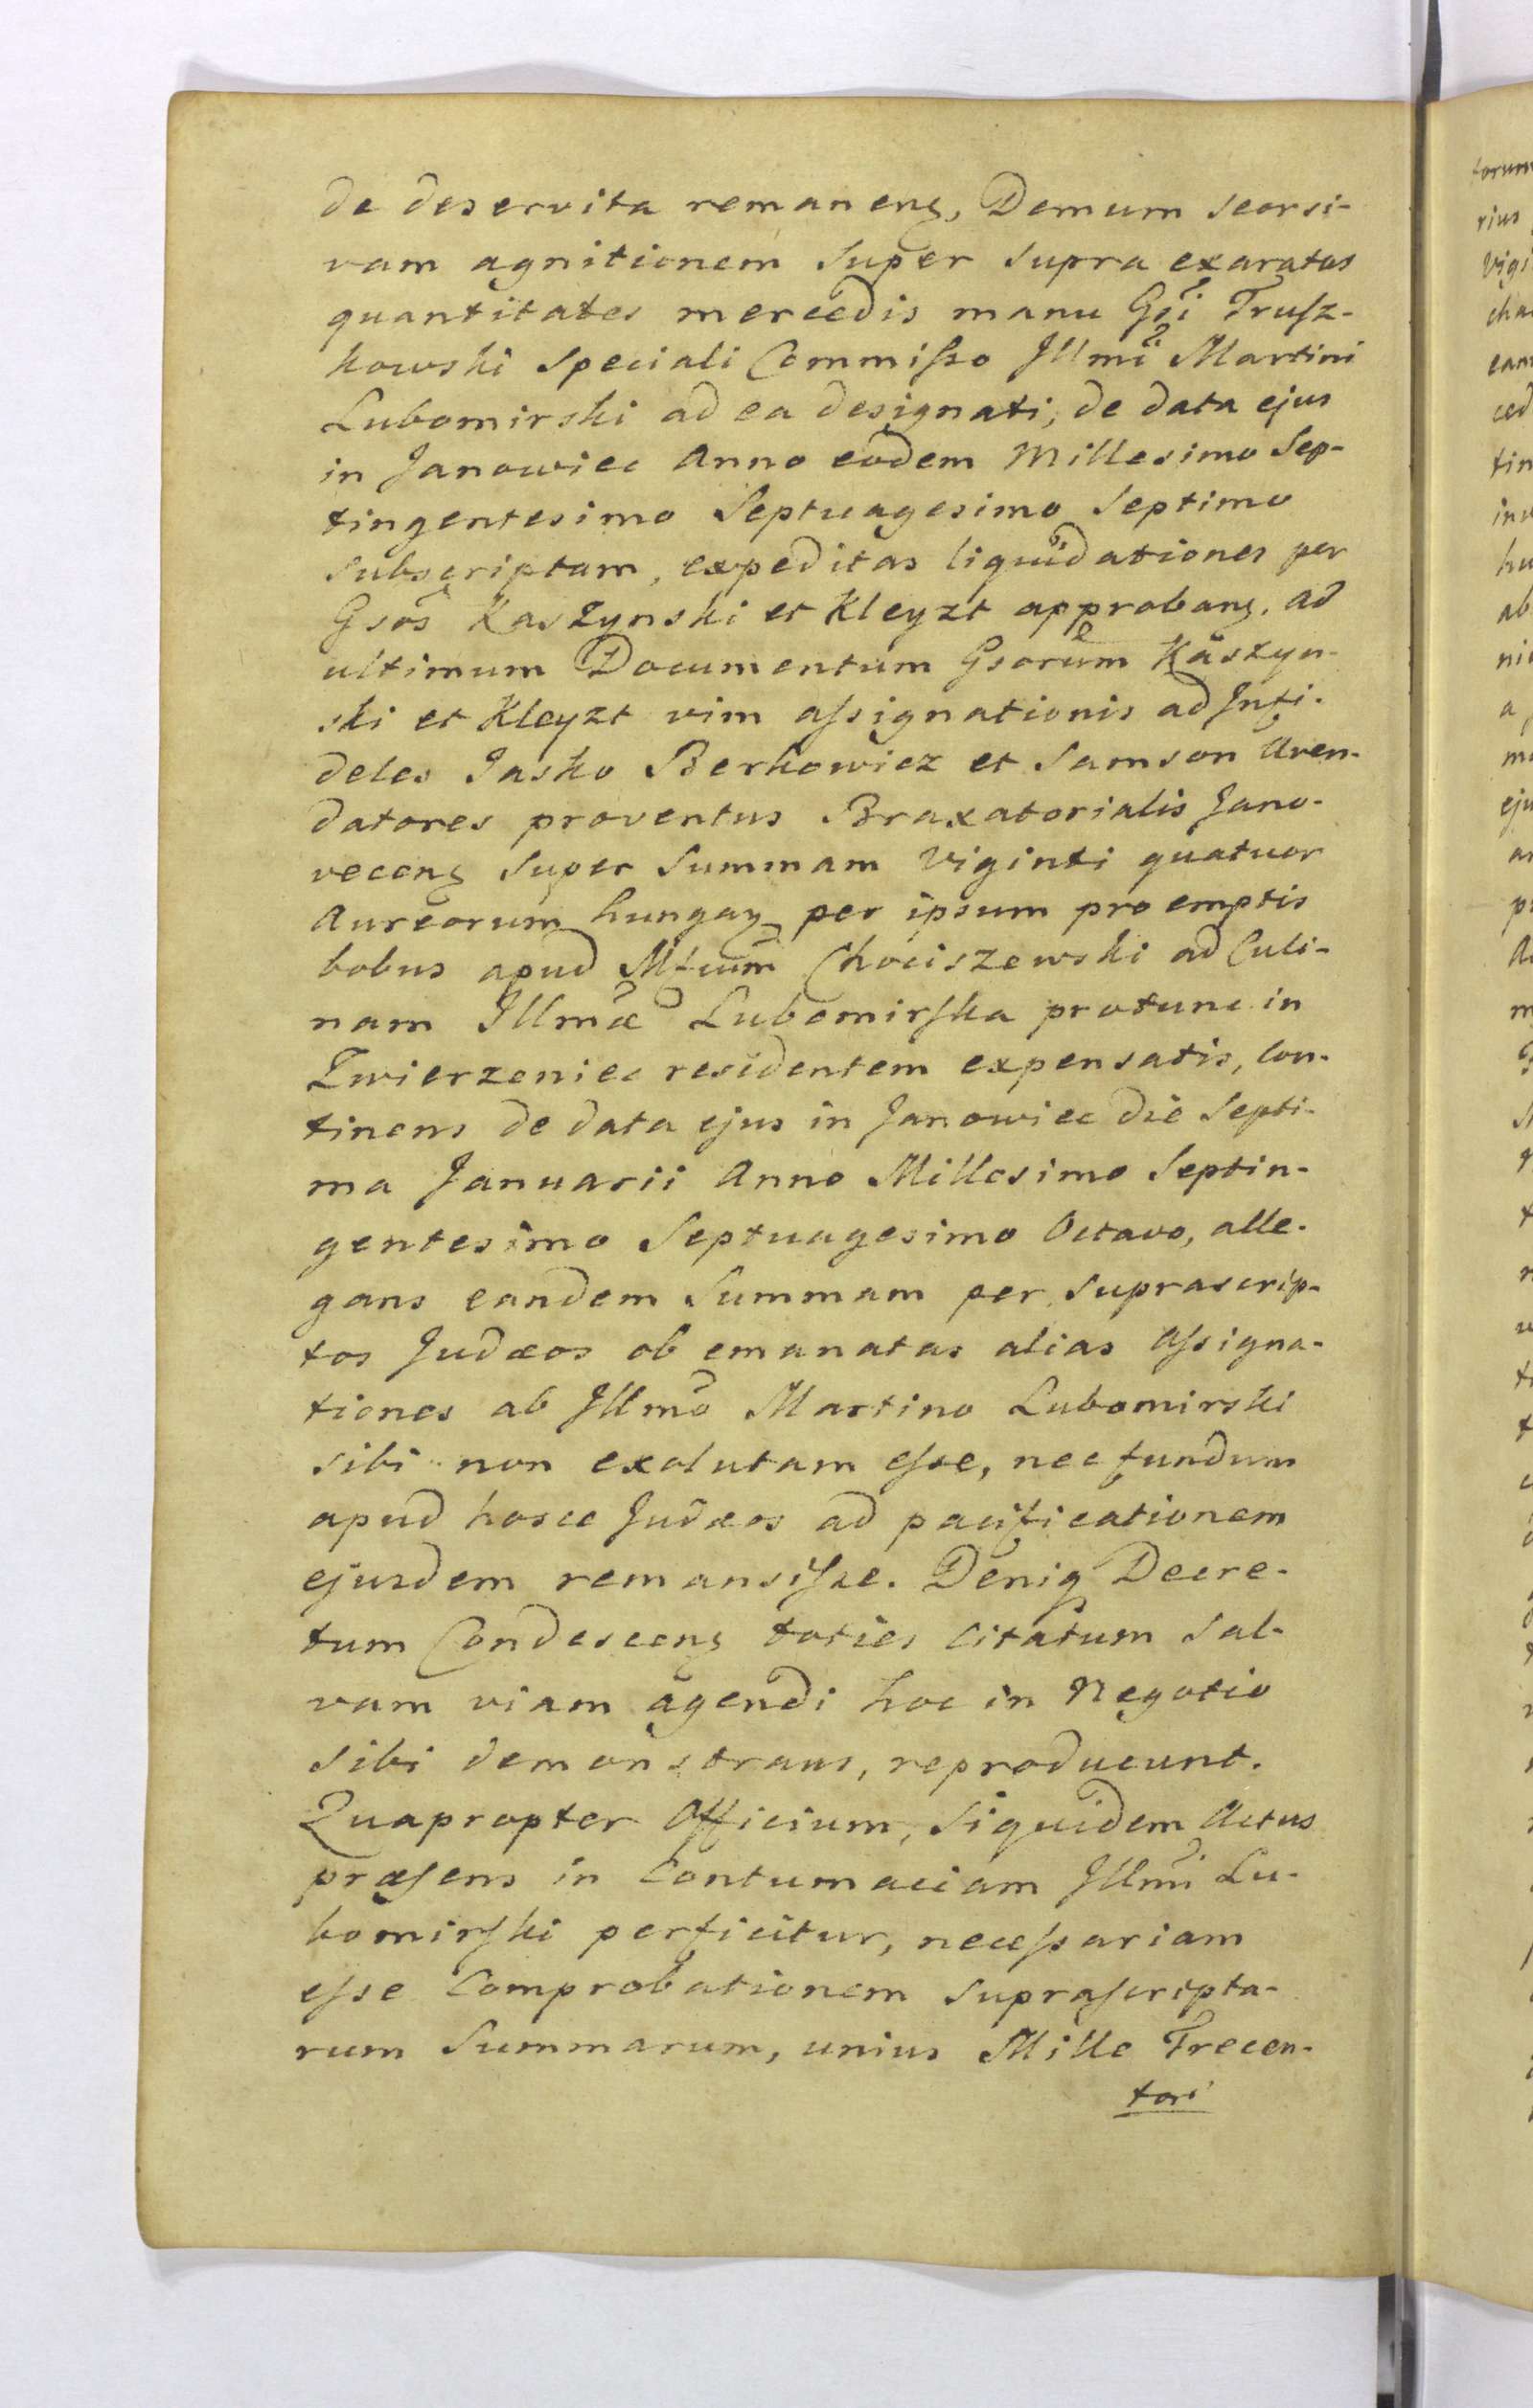 de deservita remanens, Demum seorsi-
vam agnitionem super supra exaratas
quantitates mercedis manu Gsi Truſz-
kowski speciali Commiſso Jllmi Martini
Lubomirski ad ea designati, de data ejus
in Janowiec Anno eodem Millesimo Sep-
tingentesimo Septuagesimo Septimo
subscriptam, expeditas liquidationes per
Gsos Kaszynski et Kleyzt approbans. ad
ultimum Documentum Gsorum Kaszyn-
ski et Kleyzt vim aſsignationis ad Infi-
deles Jasko Berkowicz et Samson Aren-
datores proventus Braxatorialis Jano-
vecens super Summam Viginti quatuor
Aureorum hungar per ipsum pro emptis
bobus apud Mfcum Chociszewski ad Culi-
nam Jllmæ Lubomirſka protunc in
Zwierzeniec residentem expensatis, con-
tinens de data ejus in Janowiec die Septi-
ma Januarii Anno Millesimo Septin-
gentesimo Septuagesimo Octavo, alle-
gans eandem Summam per suprascrip-
tos Judæos ob emanatas alias Aſsigna-
tiones ab Jllmo Martino Lubomirski
sibi non exolutam eſse, nec fundum
apud hosce Judæos ad pacificationem
ejusdem remansiſse. Deniq Decre-
tum Condescens toties citatum sal-
vam viam agendi hoc in Negotio
sibi demonstrans, reproducunt.
Quapropter Officium, siquidem Actus
præſens in Contumaciam Jllmi Lu-
bomirſki perficitur, neceſsariam
eſse Comprobationem supraſcripta-
rum Summarum, unius Mille Trecen-
tor
torum
rius
Vigi